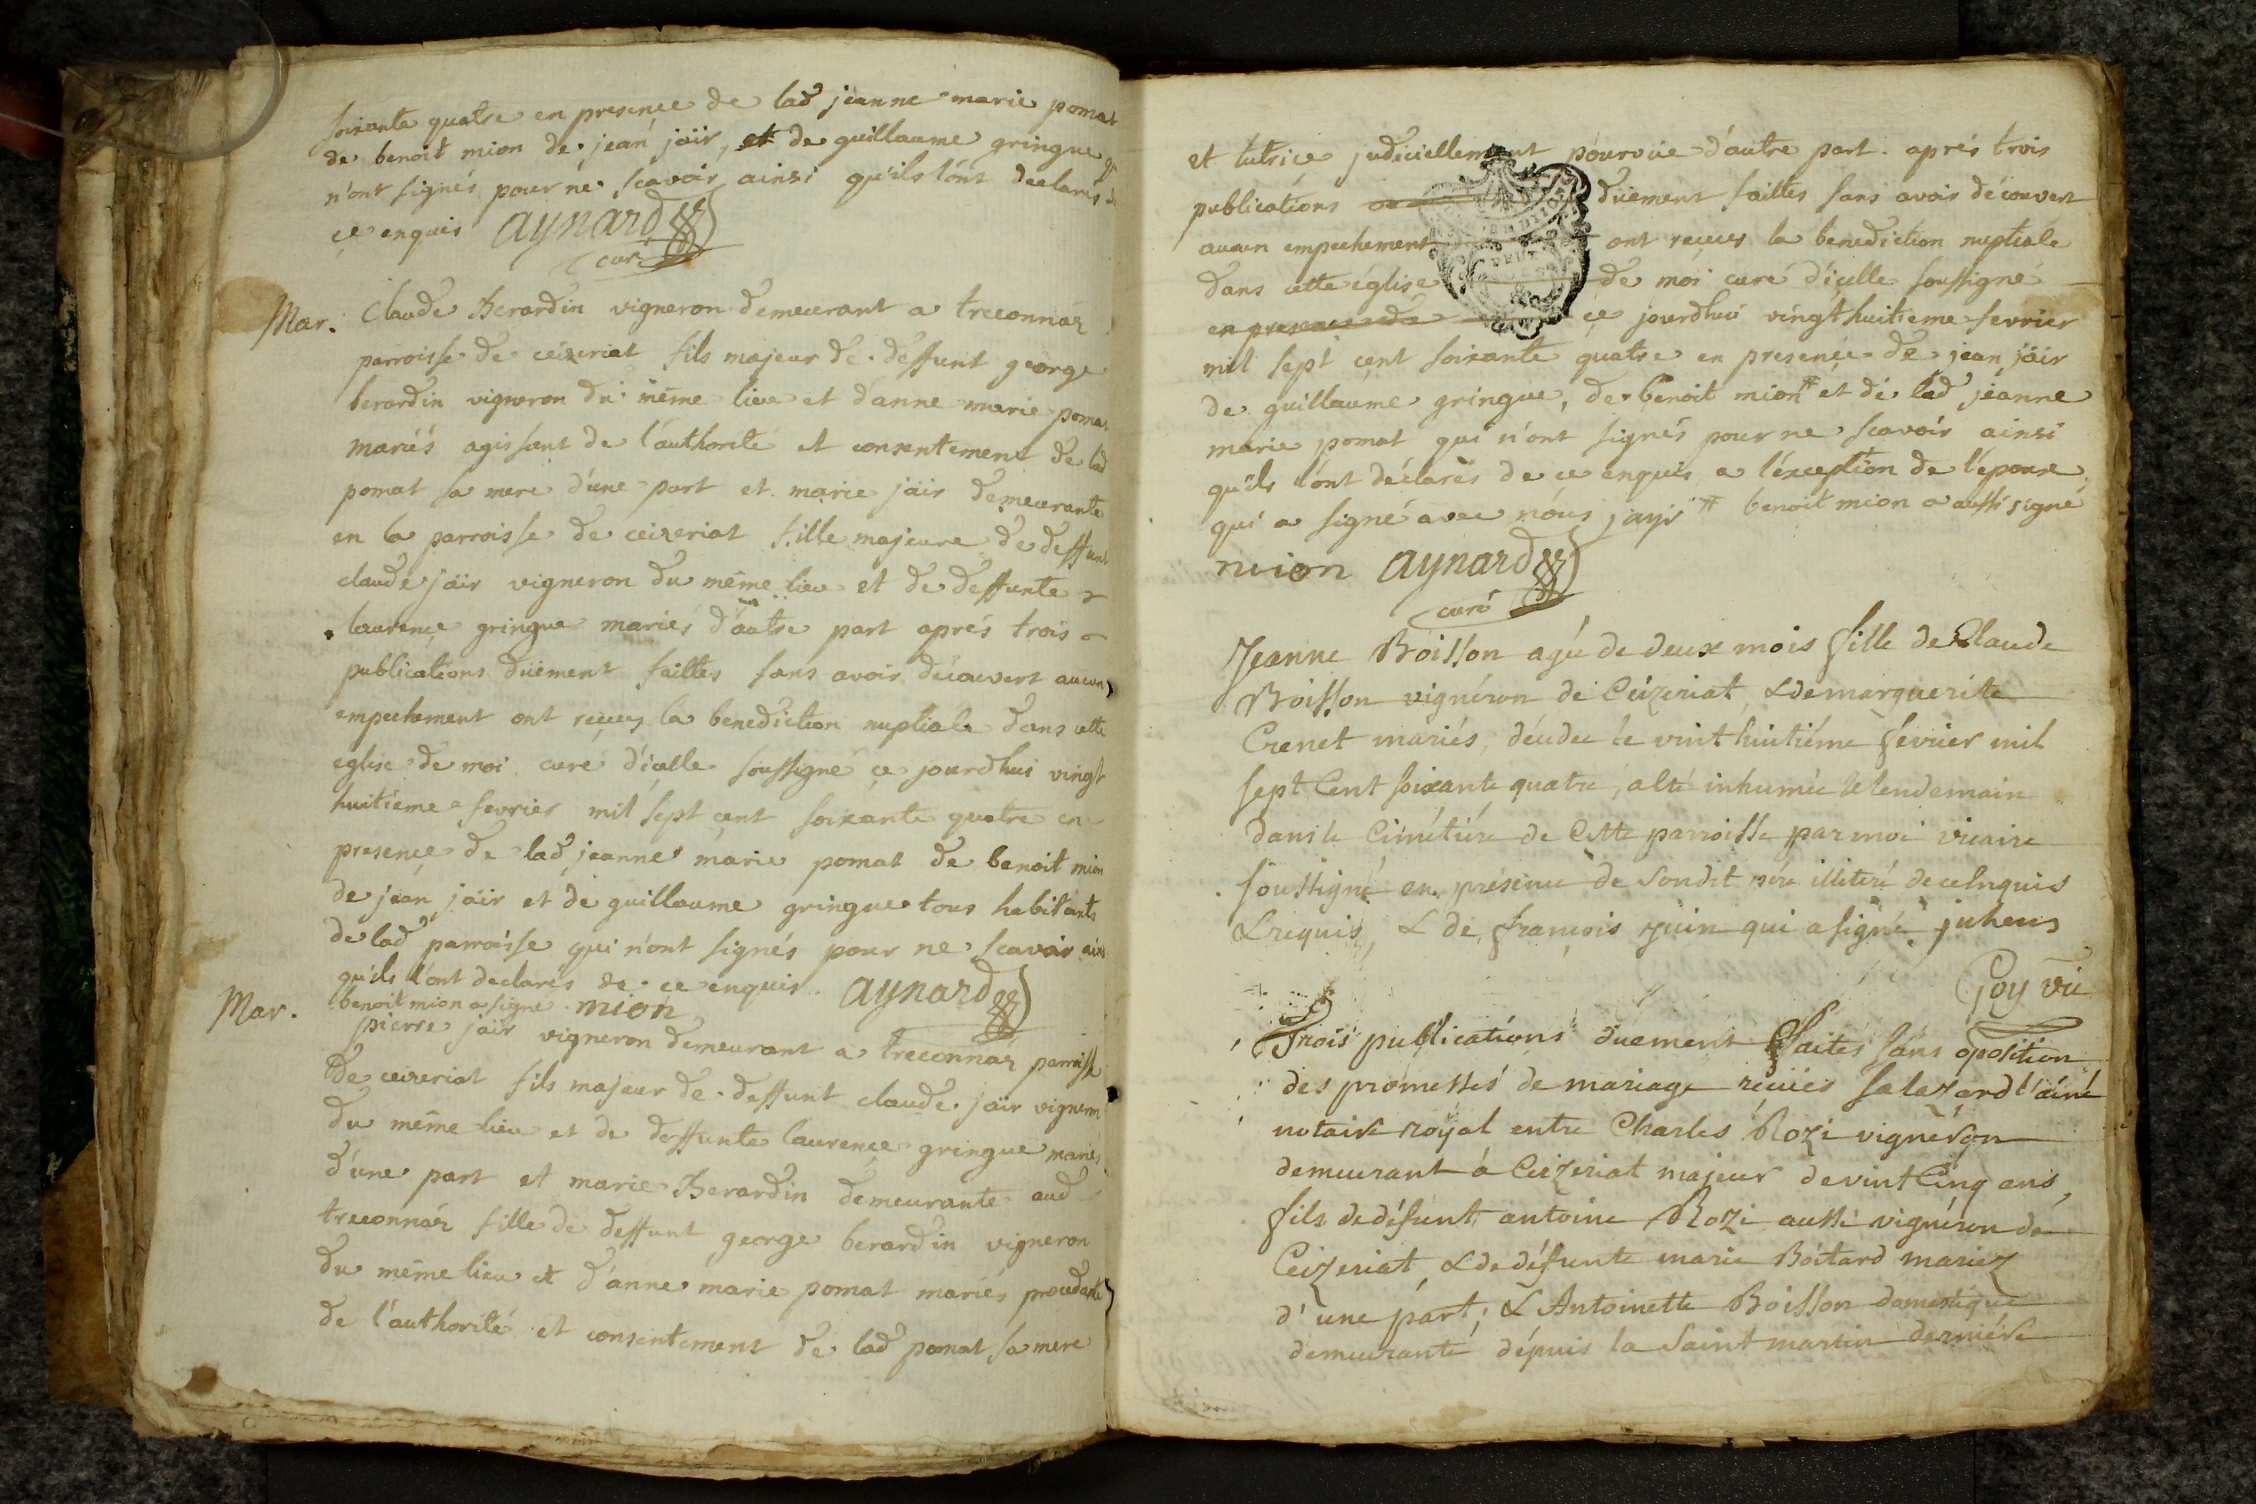 soixante quatre en presence de lad jeanne marie pomat
de benoit mion de jean jäir, et de guillaume gringue qi
n'ont signés pour ne scavoir ainsi qu'ils l'ont declarés de
ce enquis aynard
curé
Mar. Claude Berardin vigneron demeurant a treconnaz
parroisse de ceizeriat fils majeur de deffunt george
berardin vigneron du même lieu et d'anne marie pomat
mariés agissant de l'authorité et consentement de lad
pomat sa mere d'une part et marie jäir demeurante
en la parroisse de ceizeriat fille majeure de deffunt
claude jäir vigneron du même lieu et de deffunte
laurence gringue mariés d'autre part aprés trois
publications düement faittes sans avoir découvert aucun
empechement ont reçues la benediction nuptiale dans cette
eglise de moi curé d'icelle soussigné ce jourdhui vingt
huitieme fevrier mil sept cent soixante quatre en
presence de lad jeanne marie pomat de benoit mion
de jean jäir et de guillaume gringue tous habitants
de lad parroisse qui n'ont signés pour ne scavoir ainsi
qu'ils l'ont declarés de ce enquis. aynard
benoit mion a signé mion
Mar. pierre jäir vigneron demeurant a treconnaz parroisse
de ceizeriat fils majeur de deffunt claude jäir vigneron
du même lieu et de deffunte laurence gringue mariés
d'une part et marie Berardin demeurante aud
treconnaz fille de deffunt george berardin vigneron
du même lieu et d'anne marie pomat mariés procedante
de l'authorité et consentement de lad pomat sa mere
et tutrice judiciellement pourvüe d'autre part. aprés trois
publications düement faittes sans avoir découvert
aucun empechement ont reçues la benediction nuptiale
dans cette église de moi curé d'icelle soussigné
en presence de ce jourdhui vingt huitieme fevrier
mil sept cent soixante quatre en presence de jean jäir
de guillaume gringue, de benoit mion # et de lad jeanne
marie pomat qui n'ont signés pour ne scavoir ainsi
qu'ils l'ont déclarés de ce enquis a l'exception de l'épouse
qui a signé avec nous jayr # benoit mion a aussi signé
mion aynard
curé
Jeanne Boisson agée de deux mois fille de Claude
Boisson vignéron de Ceizeriat, & de marguerite
Crenet mariés, décédée le vint huitiéme février mil
sept Cent soixante quatre, a été inhumée le lendemain
dans le Cimétiére de Cette parroisse par moi vicaire
soussigné en présence de sondit pére illiteré de ce Enquis
& requis, & de françois juin qui a signé. juhens
Goy vic
Trois publications duement faites sans oposition
des promesses de mariage reçües salazard l'ainé
notaire royal entre Charles Rozi vignéron
demeurant à Ceizeriat majeur de vint Cinq ans,
fils de défunt antoine Rozi aussi vignéron de
Ceizeriat, & de défunte marie Boitard mariez
d'une part; & Antoinette Boisson domestique
demeurante dépuis la Saint martin derniére